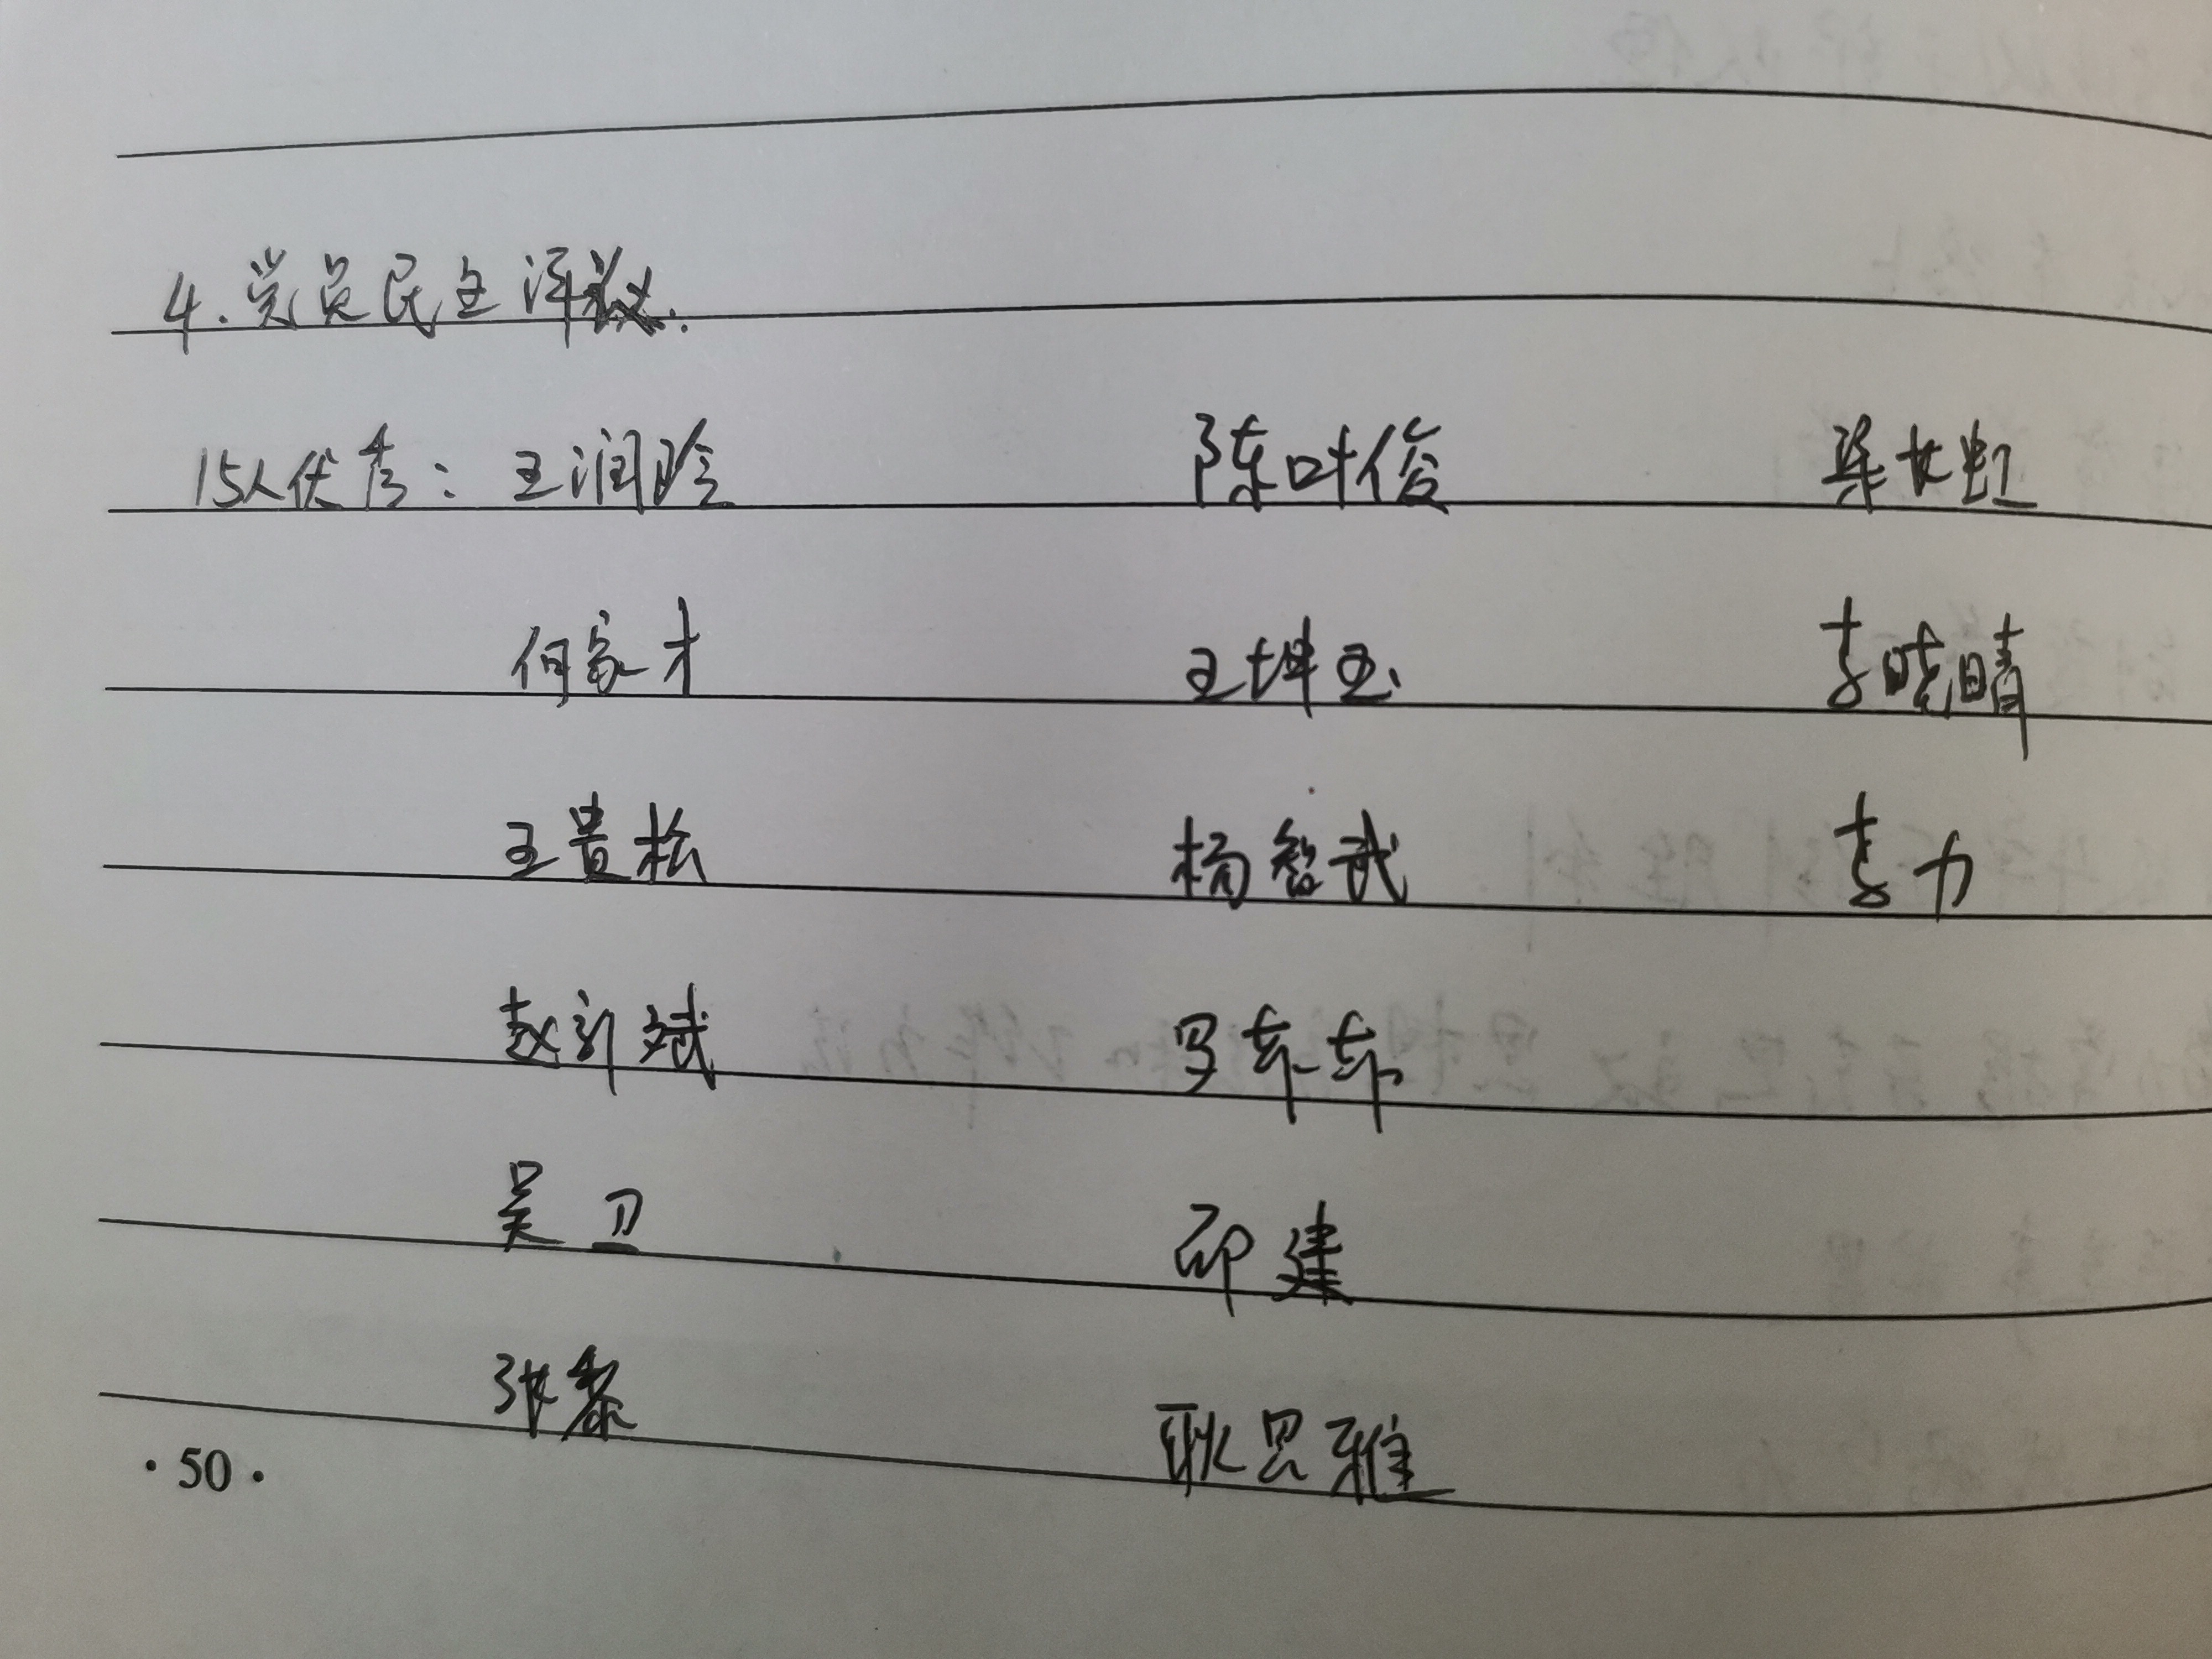 4.党员民主评议.
15人优秀：王润晗 陈叶俊 梁长虹
何家才 王坤玉 李晓晴
王贵松 杨智武 李力
赵新斌 罗东东
吴卫 邱建
张黎 耿思雅
·50·